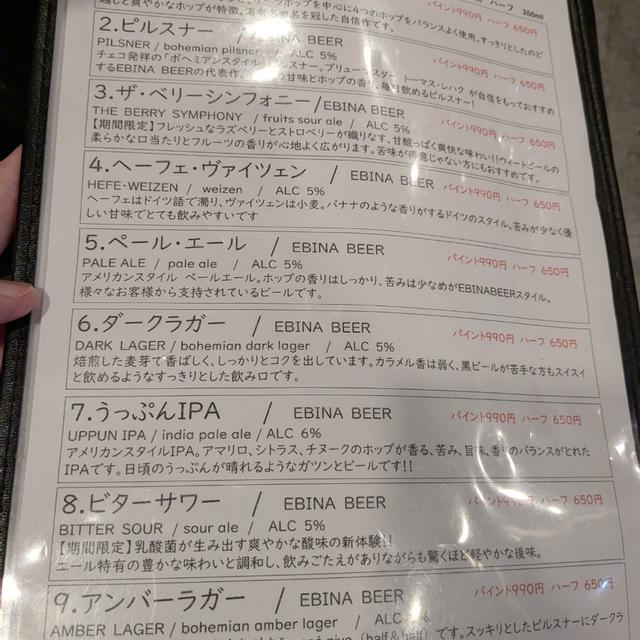 越しと爽やかなホップが特徴。
ホップを中心に4つのホップをバランスよく使用。すっきりとしたのど
の名を冠した自信作です。
パイント990円 ハーフ 260ml
2.ピルスナー / EBINA BEER
PILSNER / bohemian pilsner / ALC 5%
パイント990円 ハーフ 650円
チェコ発祥の「ボヘミアンスタイル」ピルスナー。ブリューマスター トーマス・レハク が自信をもっておすすめ
するEBINA BEERの代表作。の甘味とホップの香り、毎日飲めるピルスナー!
3.ザ・ベリーシンフォニー/EBINA BEER
THE BERRY SYMPHONY / fruits sour ale / ALC 5%
パイント990円 ハーフ 650円
【期間限定】フレッシュなラズベリーとストロベリーが織りなす、甘酸っぱく爽快な味わい!!ウィートビールの
柔らかな口当たりとフルーツの香りが心地よく広がります。苦味が得意じゃない方にもおすすめです。
4.ヘーフェ・ヴァイツェン / EBINA BEER
パイント990円 ハーフ 650円
HEFE・WEIZEN / weizen / ALC 5%
ヘーフェはドイツ語で濁り、ヴァイツェンは小麦。バナナのような香りがするドイツのスタイル。苦みが少なく優
しい甘味でとても飲みやすいです
5.ペール・エール / EBINA BEER
パイント990円 ハーフ 650円
PALE ALE / pale ale / ALC 5%
アメリカンスタイル ペールエール。ホップの香りはしっかり、苦みは少なめがEBINABEERスタイル。
様々なお客様から支持されているビールです。
6.ダークラガー / EBINA BEER
パイント990円 ハーフ 650円
DARK LAGER / bohemian dark lager / ALC 5%
焙煎した麦芽で香ばしく、しっかりとコクを出しています。カラメル香は弱く、黒ビールが苦手な方もスイスイ
と飲めるようなすっきりとした飲み口です。
7.うっぷんIPA / EBINA BEER
パイント990円 ハーフ 650円
UPPUN IPA / india pale ale / ALC 6%
アメリカンスタイルIPA。アマリロ、シトラス、チヌークのホップが香る、苦み、旨味、香りのバランスがとれた
IPAです。日頃のうっぷんが晴れるようなガツンとビールです!!
8.ビターサワー / EBINA BEER
パイント990円 ハーフ 650円
BITTER SOUR / sour ale / ALC 5%
【期間限定】乳酸菌が生み出す爽やかな酸味の新体験!!
エール特有の豊かな味わいと調和し、飲みごたえがありながらも驚くほど軽やかな後味。
9.アンバーラガー / EBINA BEER
パイント990円 ハーフ 650円
AMBER LAGER / bohemian amber lager / ALC
pivo（half＆half）です。スッキリとしたピルスナーにダークラ